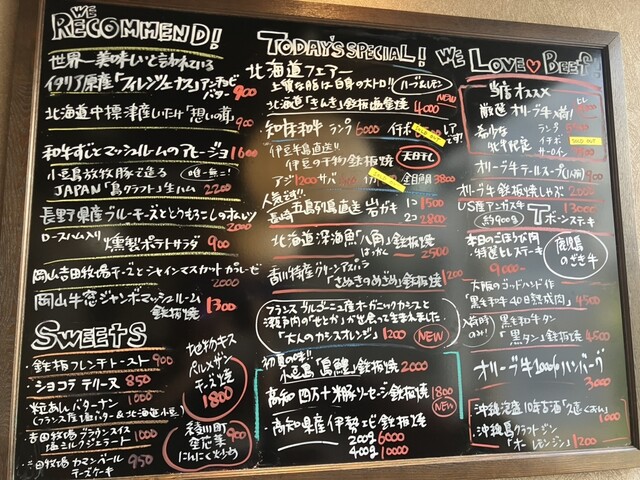 WE
RECOMMEND!
世界一美味いと言われている
イタリア原産「フィレンツェナス」アンチョビ
バター 900
北海道中標津産いももち「想いの芽」 900
和牛すじとマッシュルームのアヒージョ 1600
小豆島放牧豚で造る 唯一無二!
JAPAN「島クラフト」生ハム 2200
長野県産ブルーチーズととうもろこしのオムレツ 2000
ロースハム入り
燻製ポテトサラダ 900
岡山吉田牧場チーズとシャインマスカット 2000
岡山牛窓ジャンボマッシュルーム
鉄板焼 1300
SWEETS
・鉄板フレンチトースト 900
・ショコラテリーヌ 850
・粒あんバターナン 1000
(フランス産塩バター&北海道小豆)
・吉田牧場ブラウンスイス 1000
塩ミルクジェラート
・吉田牧場カマンベール 950
チーズケーキ
地物カキ
パルメザン
チーズ焼
1800
香川町
空芯菜 900
にんにく炒め
TODAY'S SPECIAL!
北海道フェアー
上質な脂は白身の大トロ!! ハーブ&レモン
北海道「きんき」鉄板塩釜焼 4000 NEW
・知床和牛 ランプ 6000 イチボ SOLD OUT レアです!
伊豆半島直送!!
伊豆の干物鉄板焼 天日干し
アジ1200 サバ 金目鯛 3800
人気です!!
長崎 五島列島直送 岩ガキ 1コ 1500
2コ 2800
北海道深海魚「八角」鉄板焼 2500
はっかく
香川特産グリーンアスパラ
「さぬきのめざめ」鉄板焼 1200
フランスブルゴーニュ産オーガニックカシスと
瀬戸内の「せとか」が出会って生まれました。
「大人のカシスオレンジ」 1200 NEW
初夏の味!!
小豆島「島鱧」鉄板焼 2000
高知四万十米豚ソーセージ鉄板焼 1800
NEW
・高知県産伊勢エビ鉄板焼
200g 6000
400g 10000
WE LOVE♥BEEF!
当店オススメ
厳選オリーブ牛
希少な ランプ
牝牛限定 イチボ SOLD OUT
サーロイン
オリーブ牛テールスープ(小鍋) 900
オリーブ牛鉄板しゃぶ
US産アンガス牛 13000
約900g Tボーンステーキ
本日のごほうび肉
・特選ヒレステーキ
9000~
鹿児島
のざき牛
大阪のゴッドハンド作
「黒毛和牛40日熟成肉」 4500
入荷時のみ!! 黒毛和牛タン
「黒タン」鉄板焼 4500
オリーブ牛100%ハンバーグ
3000
・沖縄泡盛10年古酒「久遠(くおん)」 1000
・沖縄島クラフトジン
「オーレモンジン」 1200